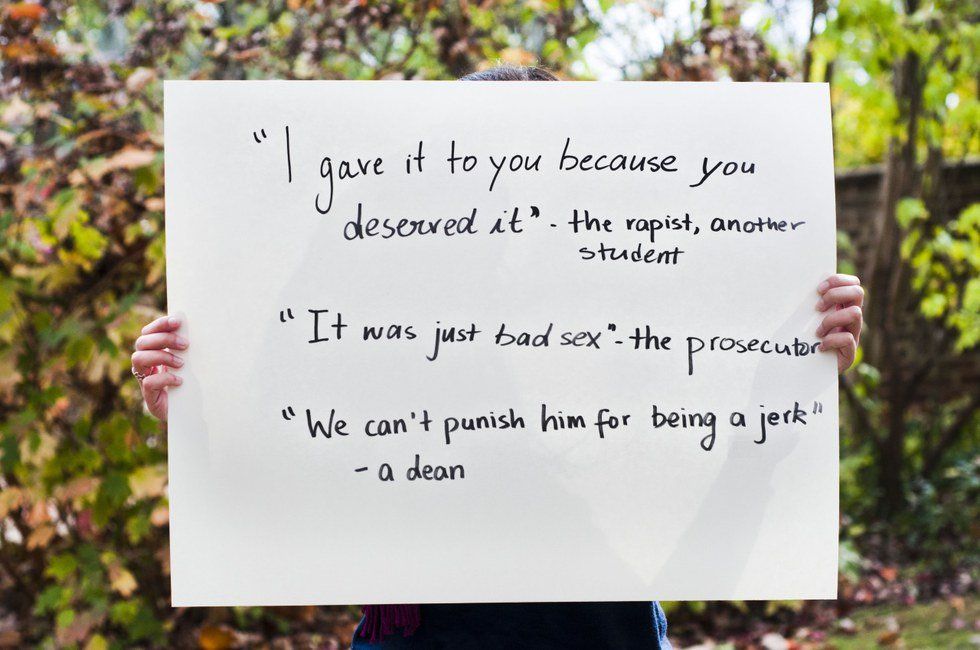 "I gave it to you because you
deserved it" - the rapist, another
student
"It was just bad sex" - the prosecutor
"We can't punish him for being a jerk"
- a dean